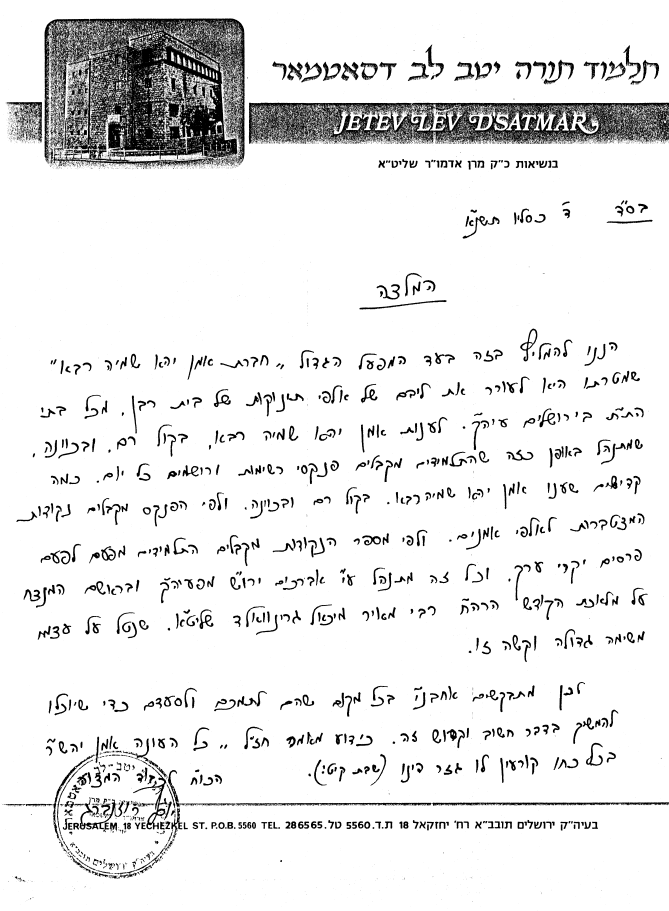 תלמוד תורה יטב לב דסאטמאר
JETEV LEV D'SATMAR
בנשיאות כ"ק מרן אדמו"ר שליט"א
בס"ד ד' כסליו תשנ"א
המלצה
הננו להמליץ בזה בעד המפעל הגדול "חברת אמן יהא שמיה רבא"
שמטרתו היא לעורר את ליבם של אלפי תינוקות של בית רבן, מכל בתי
הת"ת בירושלים עיה"ק. לענות אמן יהא שמיה רבא, בקול רם, ובכוונה,
שמתנהל באופן כזה שהתלמידים מקבלים פנקסי רשימות ורושמים כל יום. כמה
קדישים שענו אמן יהא שמיה רבא. בקול רם ובכוונה. ולפי הפנקס מקבלים נקודות
המצטברות לאלפי אמנים. ולפי מספר הנקודות מקבלים התלמידים מפעם לפעם
פרסים יקרי ערך. וכל זה מתנהל ע"י אברכים יר"ש מפעיה"ק ובראשם המנצח
על מלאכת הקודש הרה"ח רבי מאיר מיכאל גרינוואלד שליט"א. שנטל על עצמו
משימה גדולה וקשה זו.
לכן מתבקשים אחב"י בכל מקום שהם לתמכם ולסעדם כדי שיוכלו
להמשיך בדבר חשוב וקדוש זה. כידוע מאמר חז"ל "כל העונה אמן יהש"ר
בכל כחו קורעין לו גזר דינו (שבת קיט:).
הכו"ח
JERUSALEM 18 YECHEZKEL ST. P.O.B. 5560 TEL. 286565 בעיה"ק ירושלים תובב"א רח' יחזקאל 18 ת.ד. 5560 טל.